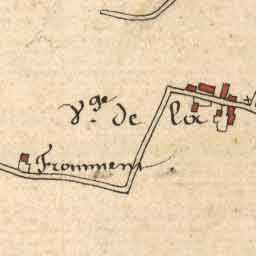 V.ge de la
Fromment